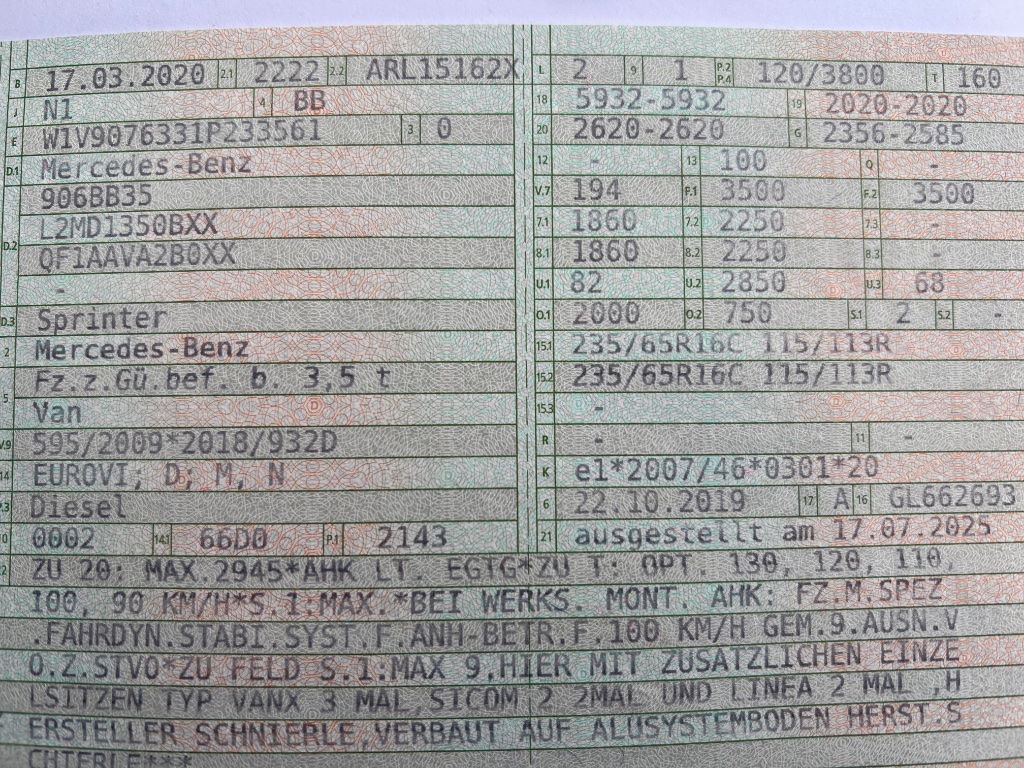 B 17.03.2020 2.1 2222 2.2 ARL15162X
J N1 4 BB
E W1V9076331P233561 3 0
D.1 Mercedes-Benz
906BB35
L2MD1350BXX
D.2
QF1AAVA2B0XX
-
D.3 Sprinter
2 Mercedes-Benz
Fz.z.Gü.bef. b. 3,5 t
5
Van
V.9 595/2009*2018/932D
14 EUROVI; D; M, N
P.3 Diesel
10 0002 14.1 66D0 P.1 2143
L 2 9 1 P.2 P.4 120/3800 T 160
18 5932-5932 19 2020-2020
20 2620-2620 G 2356-2585
12 - 13 100 Q -
V.7 194 F.1 3500 F.2 3500
7.1 1860 7.2 2250 7.3 -
8.1 1860 8.2 2250 8.3 -
U.1 82 U.2 2850 U.3 68
O.1 2000 O.2 750 S.1 2 S.2 -
15.1 235/65R16C 115/113R
15.2 235/65R16C 115/113R
15.3 -
R - 11 -
K e1*2007/46*0301*20
6 22.10.2019 17 A 16 GL662693
21 ausgestellt am 17.07.2025
22 ZU 20: MAX.2945*AHK LT. EGTG*ZU T: OPT. 130, 120, 110,
100, 90 KM/H*S.1:MAX.*BEI WERKS. MONT. AHK: FZ.M.SPEZ
.FAHRDYN.STABI.SYST.F.ANH-BETR.F.100 KM/H GEM.9.AUSN.V
O.Z.STVO*ZU FELD S.1:MAX 9,HIER MIT ZUSATZLICHEN EINZE
LSITZEN TYP VANX 3 MAL,SICOM 2 2MAL UND LINEA 2 MAL ,H
ERSTELLER SCHNIERLE,VERBAUT AUF ALUSYSTEMBODEN HERST.S
CHTERLE***